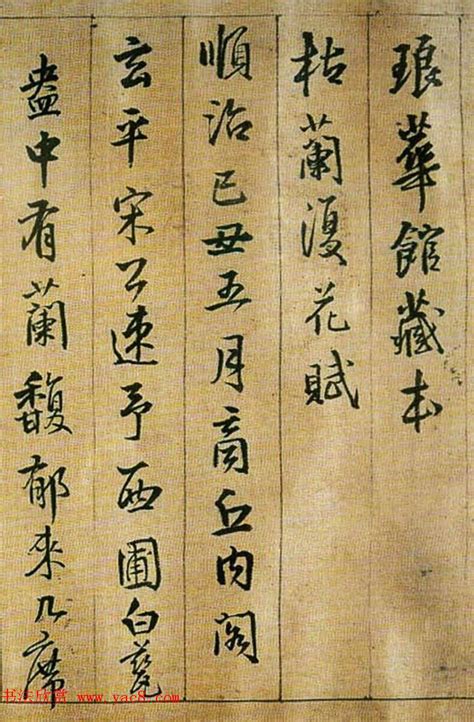 琅華館藏本
枯蘭復花賦
順治己丑五月商丘内閣
玄平宋公速予西圃白甆
盎中有蘭馥郁來几席
书法欣赏 www.yac8.com